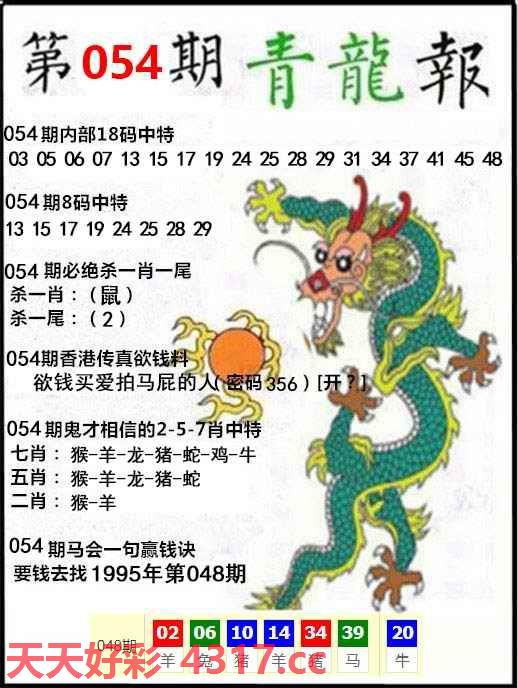 第054期青龍報
054期内部18码中特
03 05 06 07 13 15 17 19 24 25 28 29 31 34 37 41 45 48
054期8码中特
13 15 17 19 24 25 28 29
054期必绝杀一肖一尾
杀一肖：（鼠）
杀一尾：（2）
054期香港传真欲钱料
欲钱买爱拍马屁的人(密码356)[开？]
054期鬼才相信的2-5-7肖中特
七肖：猴-羊-龙-猪-蛇-鸡-牛
五肖：猴-羊-龙-猪-蛇
二肖：猴-羊
054期马会一句赢钱诀
要钱去找1995年第048期
048期 02 06 10 14 34 39 20
羊 兔 猪 羊 猪 马 牛
天天好彩-4317.cc